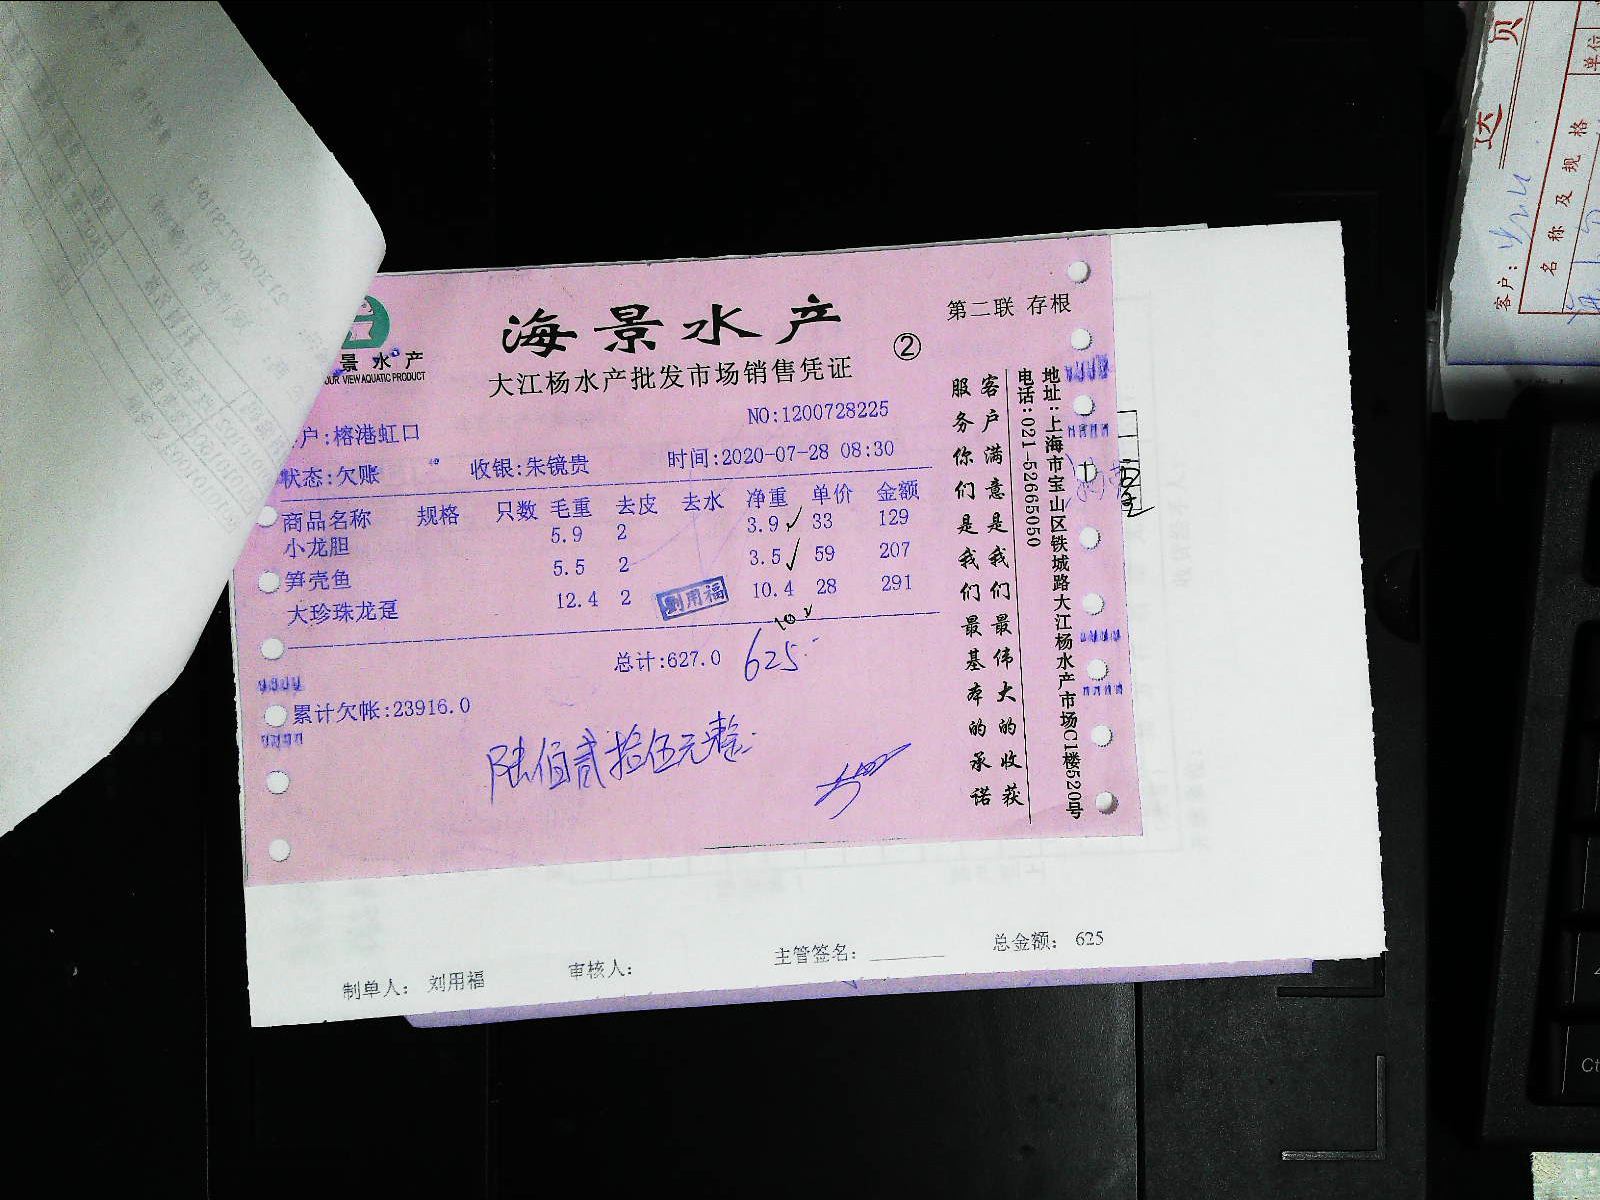 海景水产
②
第二联 存根
景水产
OUR VIEW AQUATIC PRODUCT
大江杨水产批发市场销售凭证
NO:1200728225
户:榕港虹口
状态:欠账 收银:朱镜贵 时间:2020-07-28 08:30
商品名称 规格 只数 毛重 去皮 去水 净重 单价 金额
小龙胆 5.9 2 3.9 ✓ 33 129
笋壳鱼 5.5 2 3.5 ✓ 59 207
大珍珠龙趸 12.4 2 10.4 28 291
刘用福
10 ✓
总计:627.0 625
累计欠帐:23916.0
陆佰贰拾伍元整
客户满意是我们最伟大的收获
服务你们是我们最基本的承诺
地址:上海市宝山区铁城路大江杨水产市场C1楼520号
电话:021-52665050
制单人: 刘用福 审核人: 主管签名: 总金额: 625
客户:
名称及规格
单位